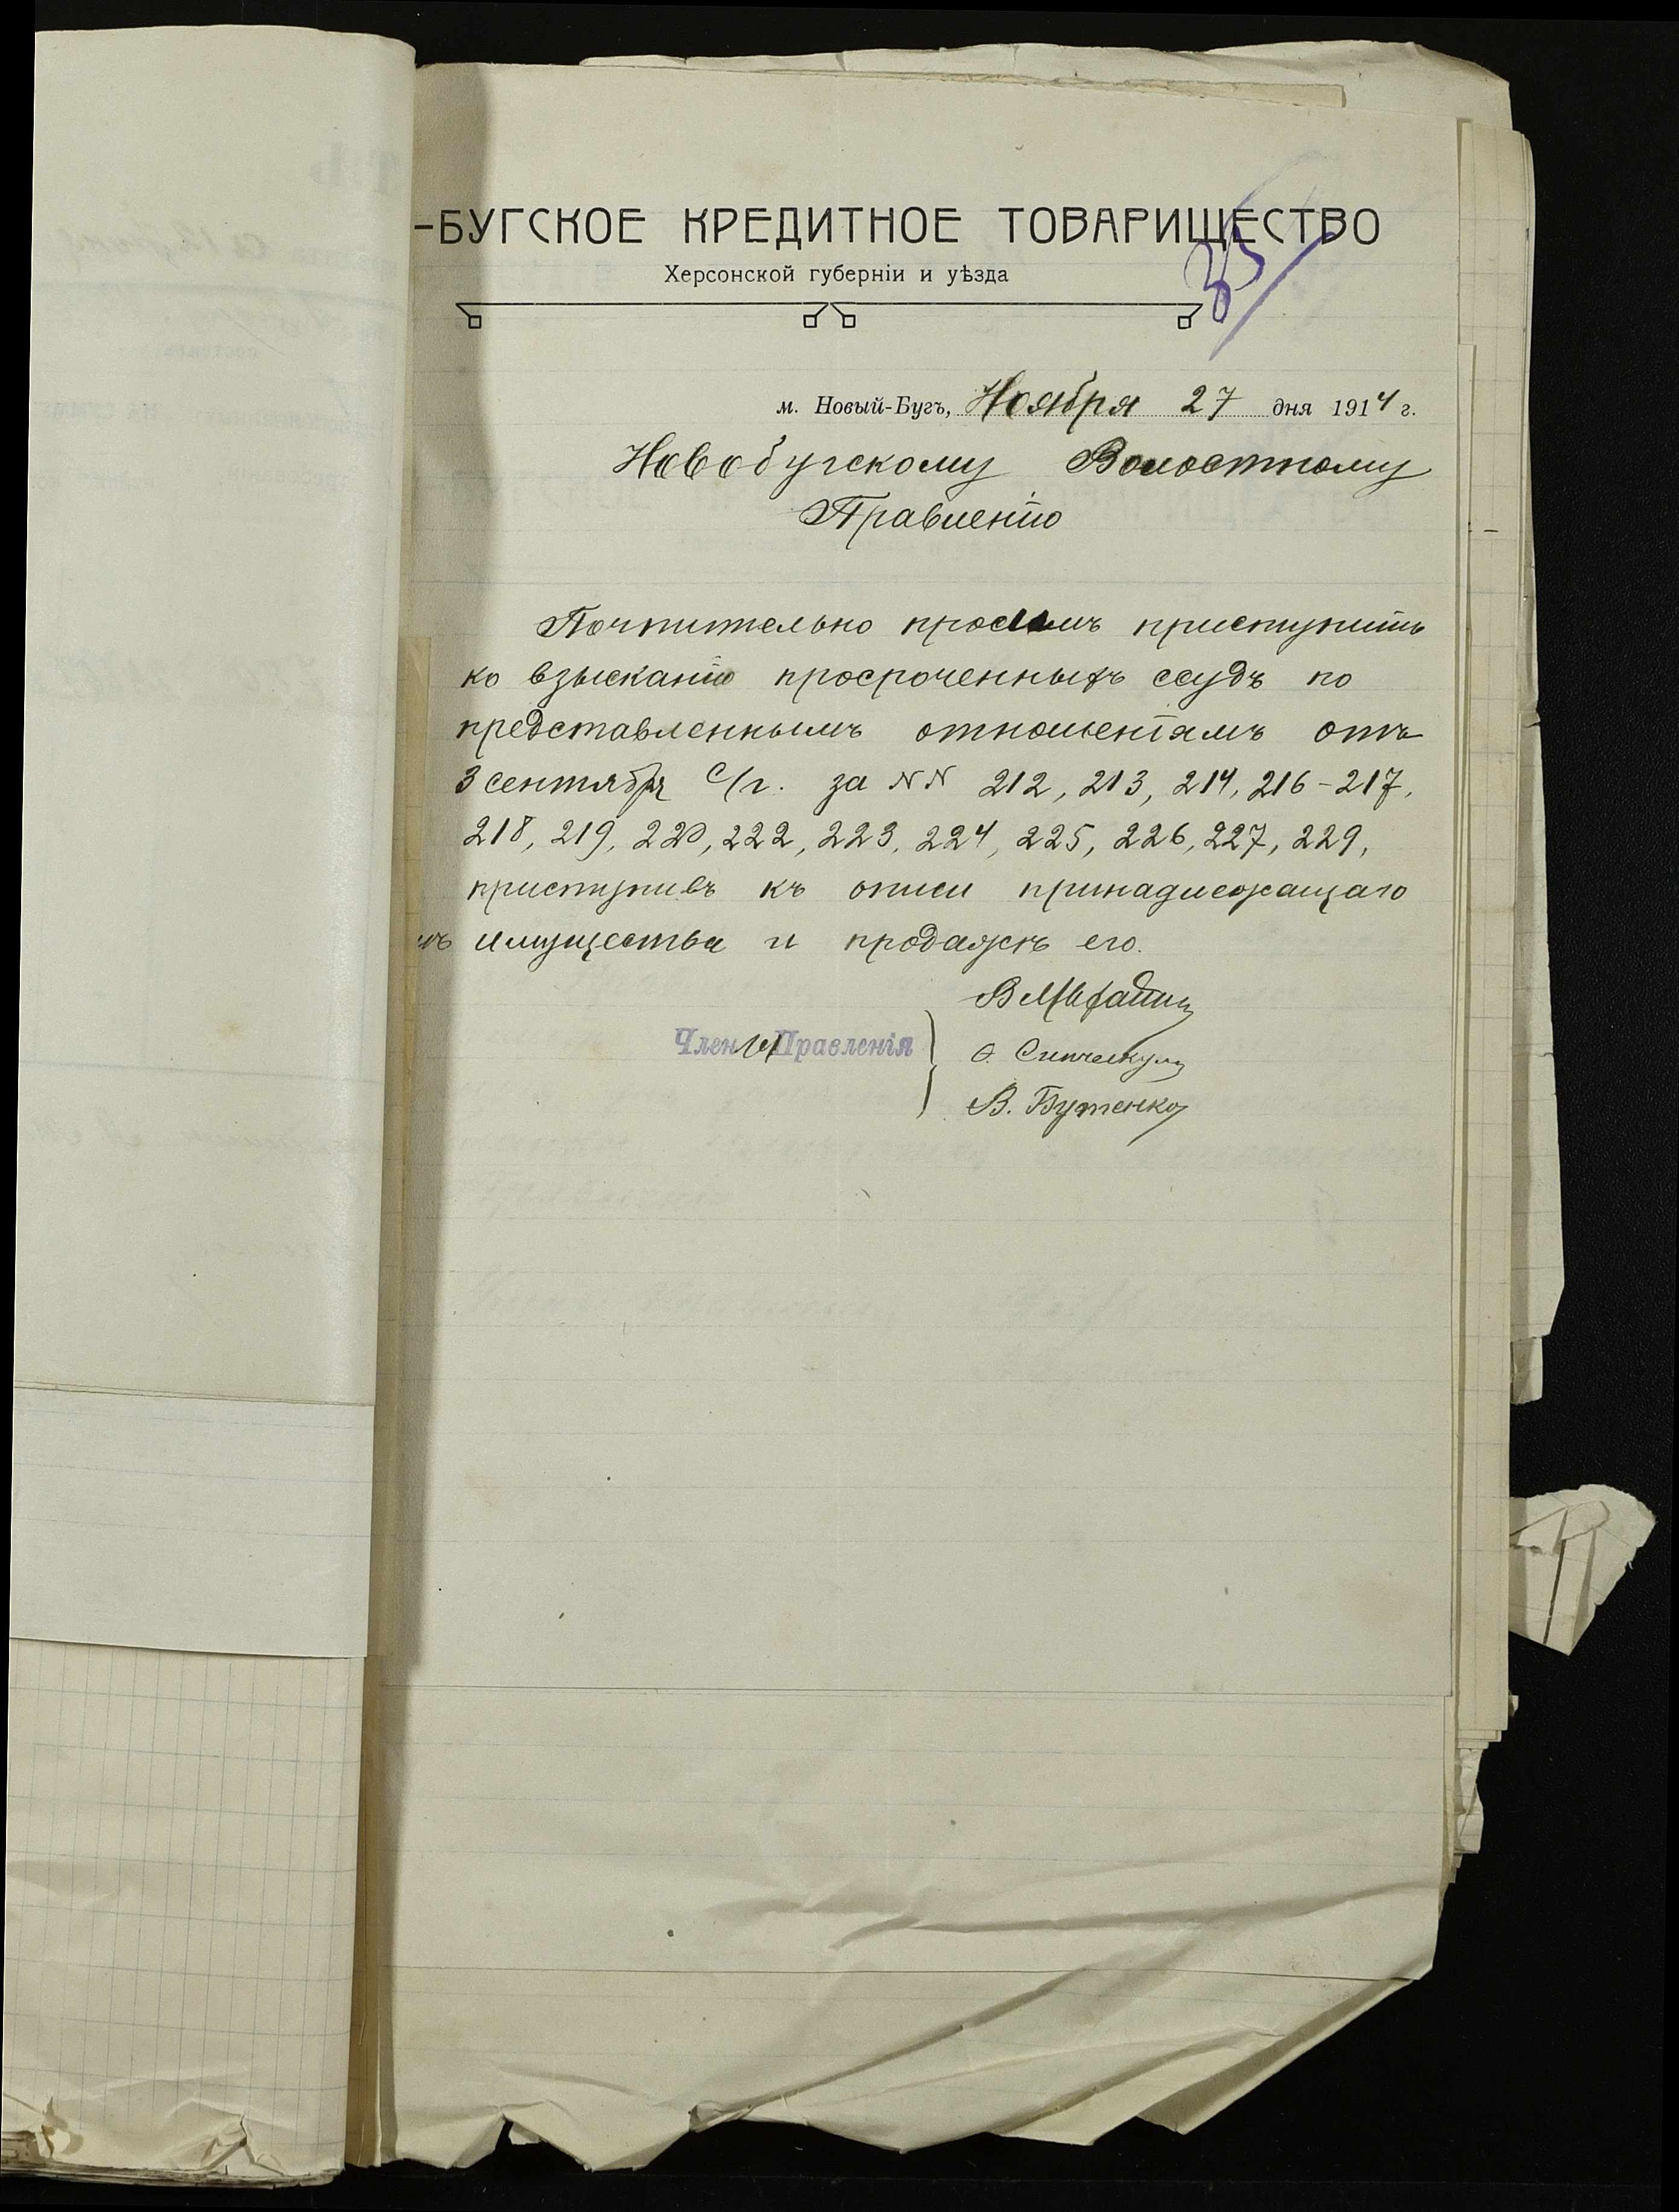 -БУГСКОЕ КРЕДИТНОЕ ТОВАРИЩЕСТВО
Херсонской губерніи и уѣзда
35
м. Новый-Бугъ, Ноября 27 дня 1914 г.
Новобугскому Волостному
Правленію
Почтительно просимъ приступить
ко взысканію просроченныхъ ссудъ по
представленнымъ отношеніямъ отъ
3 сентября с/г. за NN 212, 213, 214, 216-217,
218, 219, 220, 222, 223, 224, 225, 226, 227, 229,
приступивъ къ описи принадлежащаго
имъ имущества и продажѣ его.
Члены Правленія
В. Бутенко